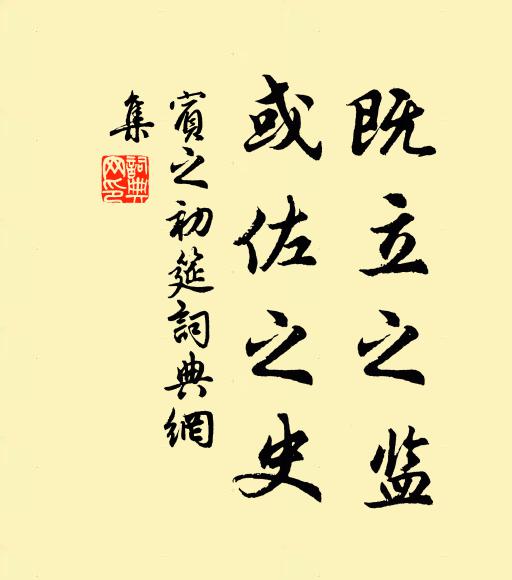 既立之监
或佐之史
賓之初筵詞典網
集
詞典
网印